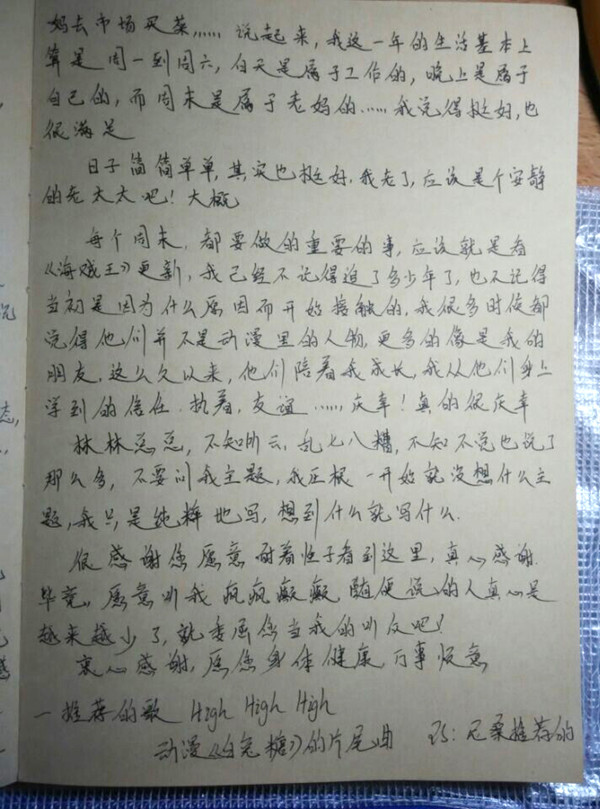 妈去市场买菜…… 说起来,我这一年的生活基本上
算是周一到周六,白天是属于工作的,晚上是属于
自己的,而周末是属于老妈的……我觉得挺好,也
很满足
日子简简单单,其实也挺好.我老了,应该是个安静
的老太太吧!大概
每个周末,都要做的重要的事,应该就是看
《海贼王》更新,我已经不记得追了多少年了,也不记得
当初是因为什么原因而开始接触的,我很多时候都
觉得他们并不是动漫里的人物,更多的像是我的
朋友,这么久以来,他们陪着我成长,我从他们身上
学到的信任.执着,友谊……庆幸!真的很庆幸
林林总总,不知所云,乱七八糟,不知不觉也说了
那么多,不要问我主题,我压根一开始就没想什么主
题,我只是纯粹地写,想到什么就写什么.
很感谢您愿意耐着性子看到这里,真心感谢.
毕竟,愿意听我疯疯癫癫随便说的人真心是
越来越少了,就委屈您当我的听众吧!
衷心感谢,愿您身体健康,万事顺意
一推荐的歌 High High High
动漫《白兔糖》的片尾曲 PS:尼桑推荐的